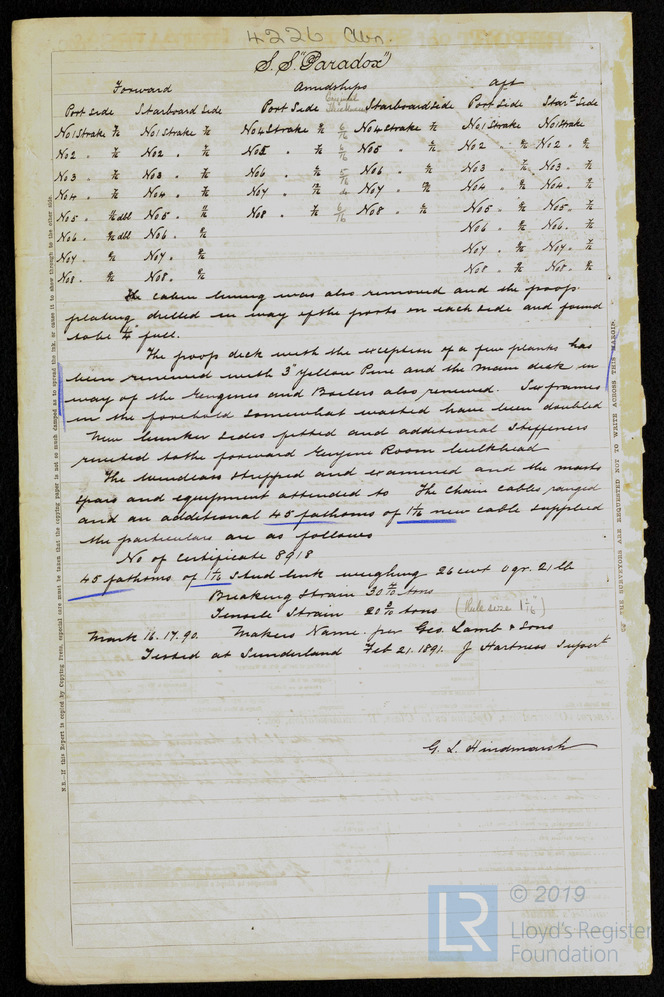 4226 Abn.
S.S. "Paradox"
Forward Amidships Aft
Port Side Starboard Side Port Side Original Thickness Starboard Side Port Side Starbd Side
No 1 Strake No 1 Strake No 4 Strake 6/16 No 4 Strake No 1 Strake No 1 Strake
No 2 " No 2 " No 5 " 6/16 No 5 " No 2 " No 2 "
No 3 " No 3 " No 6 " 5/16 No 6 " No 3 " No 3 "
No 4 " No 4 " No 7 " do No 7 " No 4 " No 4 "
No 5 " dbl No 5 " No 8 " 6/16 No 8 " No 5 " No 5 "
No 6 " dbl No 6 " No 6 " No 6 "
No 7 " No 7 " No 7 " No 7 "
No 8 " No 8 " No 8 " No 8 "
The cabin lining was also removed and the poop
plating drilled in way of the ports on each side and found
to be 1/4" full.
The poop deck with the exception of a few planks has
been renewed with 3" Yellow Pine and the main deck in
way of the Engines and Boilers also renewed. Six frames
in the forehold somewhat wasted have been doubled
New bunker sides fitted and additional stiffeners
riveted to the forward Engine Room bulkhead
The windlass stripped and examined and the masts
spars and equipment attended to The chain cables ranged
and an additional 45 fathoms of 1 1/16 new cable supplied
the particulars are as follows
No of Certificate 8918
45 fathoms of 1 1/16 Stud link weighing 26 cwt 0 qr. 21 lb
Breaking Strain 30 tons
Tensile Strain 20 tons (Rule size 1 1/16")
Mark 16.17.90. Makers Name. per Geo. Lamb & Sons
Tested at Sunderland Feb 21. 1891. J Hartness Supert
G. L. Hindmarsh
N.B.—If this Report is copied by Copying Press, especial care must be taken that the copying paper is not so much damped as to spread the ink, or cause it to show through to the other side.
THE SURVEYORS ARE REQUESTED NOT TO WRITE ACROSS THIS MARGIN.
LR
© 2019
Lloyd's Register
Foundation